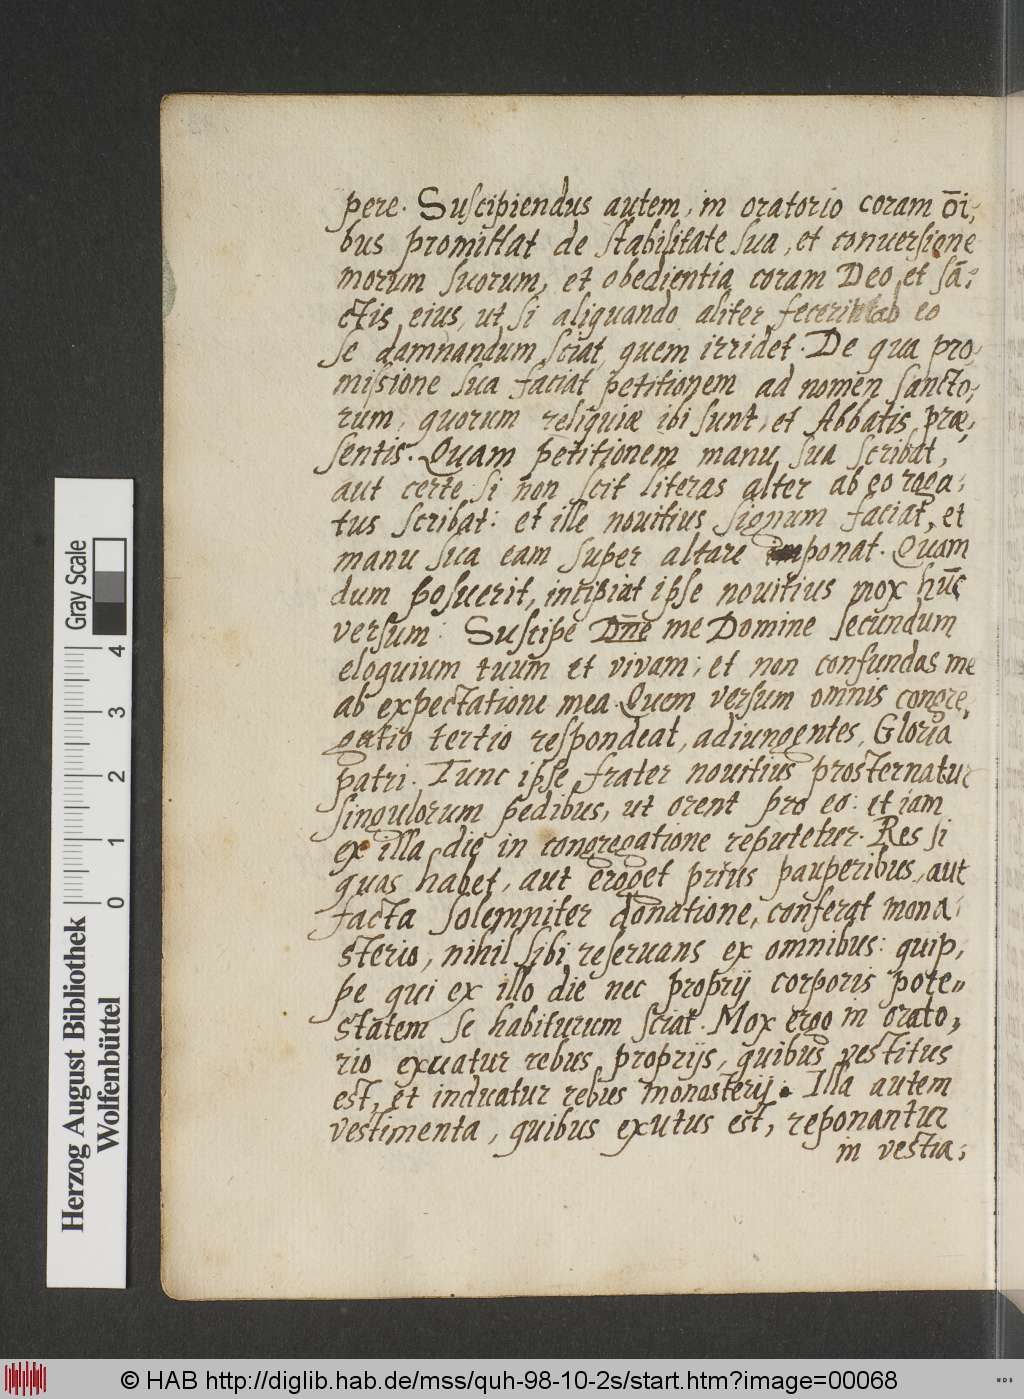 pere. Suscipiendus autem, in oratorio coram o̅i,
bus promittat de stabilitate sua, et conuersione
morum suorum, et obedientia coram Deo et sā,
ctis eius, ut si aliquando aliter fecerit ab eo
se damnandum sciat, quem irridet. De qua pro,
missione sua faciat petitionem ad nomen sancto,
rum, quorum reliquiæ ibi sunt, et Abbatis præ,
sentis. Quam petitionem manu sua scribat,
aut certe si non scit literas alter ab eo roga,
tus scribat: et ille nouitius signum faciat, et
manu sua eam super altare imponat. Quam
dum posuerit, incipiat ipse nouitius mox hūc
versum: Suscipe Dn̅e me Domine secundum
eloquium tuum et vivam, et non confundas me
ab expectatione mea. Quem versum omnis congre,
gatio tertio respondeat, adiungentes, Gloria
patri. Tunc ipse frater nouitius prosternatur
singulorum pedibus, ut orent pro eo: et iam
ex illa die in congregatione reputetur. Res si
quas habet, aut eroget prius pauperibus, aut
facta solemniter donatione, conferat mona,
sterio, nihil sibi reseruans ex omnibus: quip,
pe qui ex illo die nec proprij corporis pote„
statem se habiturum sciat. Mox ergo in orato„
rio exuatur rebus proprijs, quibus vestitus
est, et induatur rebus monasterij. Illa autem
vestimenta, quibus exutus est, reponantur
in vestia,
Gray Scale
4
3
2
1
0
Herzog August Bibliothek
Wolfenbüttel
© HAB http://diglib.hab.de/mss/quh-98-10-2s/start.htm?image=00068